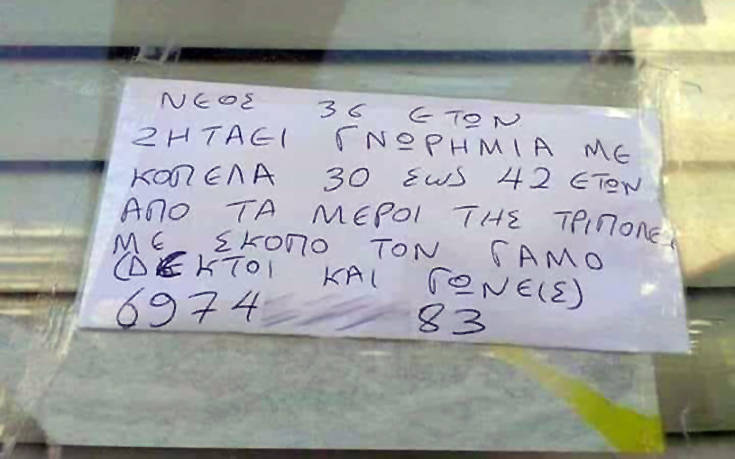 ΝΕΟΣ 36 ΕΤΩΝ
ΖΗΤΑΕΙ ΓΝΩΡΗΜΙΑ ΜΕ
ΚΟΠΕΛΑ 30 εως 42 ΕΤΩΝ
ΑΠΟ ΤΑ ΜΕΡΟΙ ΤΗΣ ΤΡΙΠΟΛΕΙ
ΜΕ ΣΚΟΠΟ ΤΟΝ ΓΑΜΟ
(ΔΕΚΤΟΙ ΚΑΙ ΓΩΝΕ(Σ)
6974 83